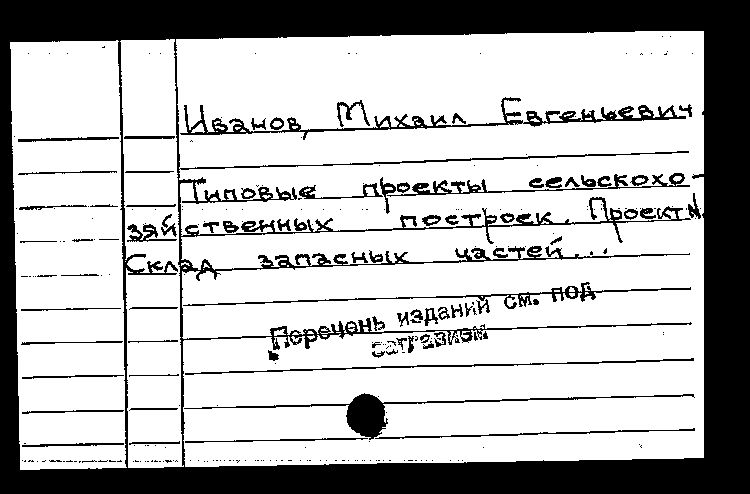 Иванов, Михаил Евгеньевич.
Типовые проекты сельскохо-
зяйственных построек. Проект N.
Склад запасных частей...
Перечень изданий см. под
заглавием